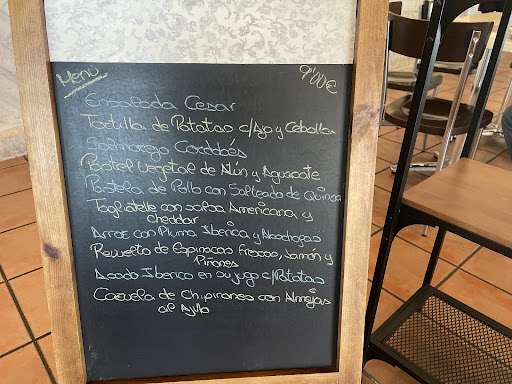 Menú
9'00€
Ensalada Cesar
Tortilla de Patatas c/Ajo y Cebolla
Salmorejo Cordobés
Pastel Vegetal de Atún y Aguacate
Pastela de Pollo con Salteado de Quinoa
Tagliatelle con salsa Americana y
cheddar
Arroz con Pluma Iberica y
Revuelto de Espinacas Frescas, Jamón y
Piñones
Asado Iberico en su jugo c/Patatas
Cazuela de Chipirones con Almejas
al Ajillo